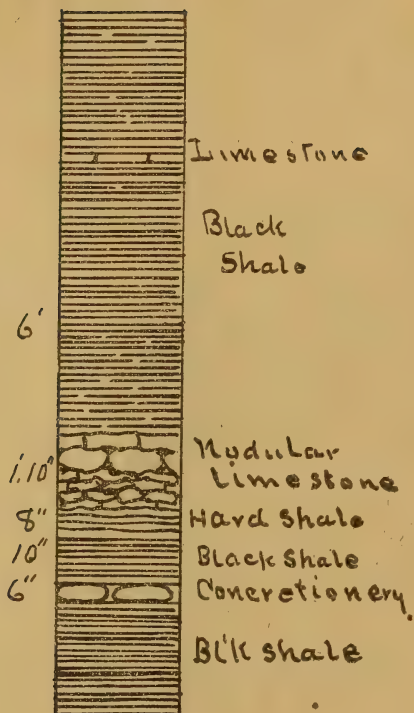 Limestone
Black
Shale
6'
Nodular
1'.10"
Limestone
8"
Hard Shale
10"
Black Shale
6"
Concretionery
Bl'k shale